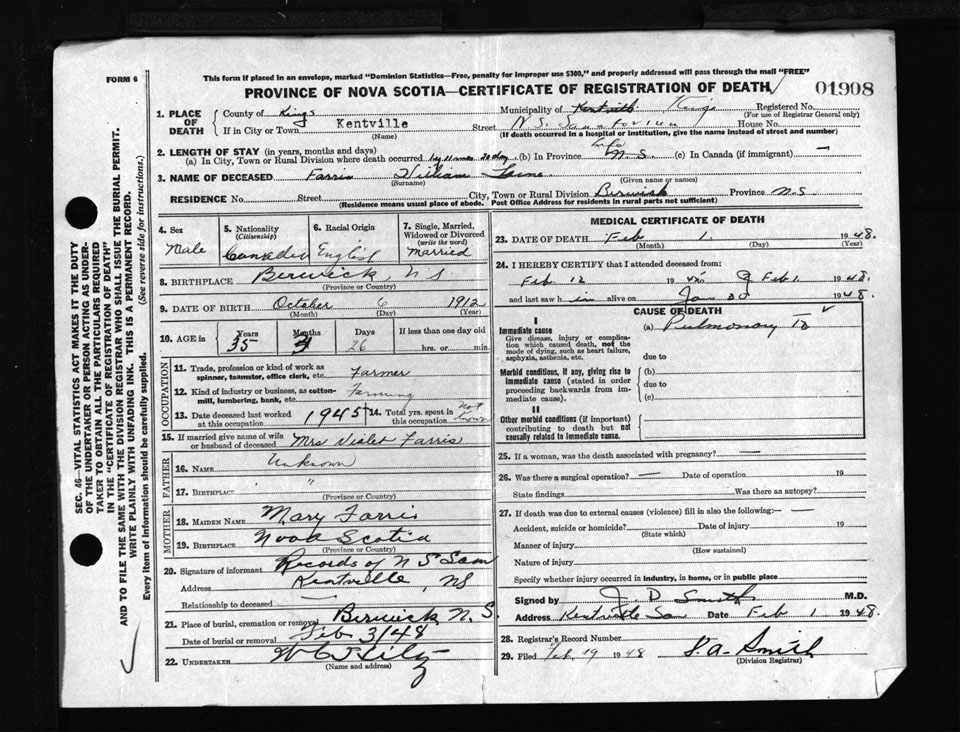 FORM 6
This form if placed in an envelope, marked "Dominion Statistics—Free, penalty for improper use $300," and properly addressed will pass through the mail "FREE"
PROVINCE OF NOVA SCOTIA—CERTIFICATE OF REGISTRATION OF DEATH 01908
1. PLACE OF DEATH County of Kings Municipality of Kentville Kings Registered No.
(For use of Registrar General only)
If in City or Town Kentville Street N.S. Sanatorium House No.
(Name) (If death occurred in a hospital or institution, give the name instead of street and number)
2. LENGTH OF STAY (in years, months and days)
(a) In City, Town or Rural Division where death occurred 1 yr 11 mos 20 days (b) In Province life N.S. (c) In Canada (if immigrant) —
3. NAME OF DECEASED Farris William
(Surname) (Given name or names)
RESIDENCE No. Street City, Town or Rural Division Berwick Province N.S.
(Residence means usual place of abode. Post Office Address for residents in rural parts not sufficient)
4. Sex Male
5. Nationality (Citizenship) Canadian
6. Racial Origin English
7. Single, Married, Widowed or Divorced (write the word) Married
8. BIRTHPLACE Berwick, N.S.
(Province or Country)
9. DATE OF BIRTH October 6 1912
(Month) (Day) (Year)
10. AGE in Years Months Days If less than one day old
35 3 26 hrs. or min.
OCCUPATION
11. Trade, profession or kind of work as spinner, teamster, office clerk, etc. Farmer
12. Kind of industry or business, as cotton-mill, lumbering, bank, etc. Farming
13. Date deceased last worked at this occupation 1945 14. Total yrs. spent in this occupation Not known
15. If married give name of wife or husband of deceased Mrs Violet Farris
FATHER
16. NAME Unknown
17. BIRTHPLACE " "
(Province or Country)
MOTHER
18. MAIDEN NAME Mary Farris
19. BIRTHPLACE Nova Scotia
(Province or Country)
20. Signature of informant Records of N S San
Address Kentville, NS
Relationship to deceased —
21. Place of burial, cremation or removal Berwick N.S.
Date of burial or removal Feb 3/48
22. UNDERTAKER
(Name and address)
MEDICAL CERTIFICATE OF DEATH
23. DATE OF DEATH Feb 1. 1948.
(Month) (Day) (Year)
24. I HEREBY CERTIFY that I attended deceased from:
Feb 12 1945 Feb 1. 1948.
and last saw him alive on Jan 30 1948.
CAUSE OF DEATH
I
Immediate cause (a) Pulmonary TB
Give disease, injury or complication which caused death, not the mode of dying, such as heart failure, asphyxia, asthenia, etc.
due to
Morbid conditions, if any, giving rise to immediate cause (stated in order proceeding backwards from immediate cause). (b)
due to
(c)
II
Other morbid conditions (if important) contributing to death but not causally related to immediate cause.
25. If a woman, was the death associated with pregnancy? —
26. Was there a surgical operation? — Date of operation 19
State findings Was there an autopsy?
27. If death was due to external causes (violence) fill in also the following:— —
Accident, suicide or homicide? Date of injury 19
(State which)
Manner of injury
(How sustained)
Nature of injury
Specify whether injury occurred in industry, in home, or in public place
Signed by J. D. Smith. M.D.
Address Kentville San Date Feb 1 1948.
28. Registrar's Record Number
29. Filed Feb. 19 1948 Smith
(Division Registrar)
SEC. 46—VITAL STATISTICS ACT MAKES IT THE DUTY
OF THE UNDERTAKER OR PERSON ACTING AS UNDER-
TAKER TO OBTAIN ALL THE PARTICULARS REQUIRED
IN THE "CERTIFICATE OF REGISTRATION OF DEATH"
AND TO FILE THE SAME WITH THE DIVISION REGISTRAR WHO SHALL ISSUE THE BURIAL PERMIT.
WRITE PLAINLY WITH UNFADING INK. THIS IS A PERMANENT RECORD.
Every item of information should be carefully supplied. (See reverse side for instructions.)